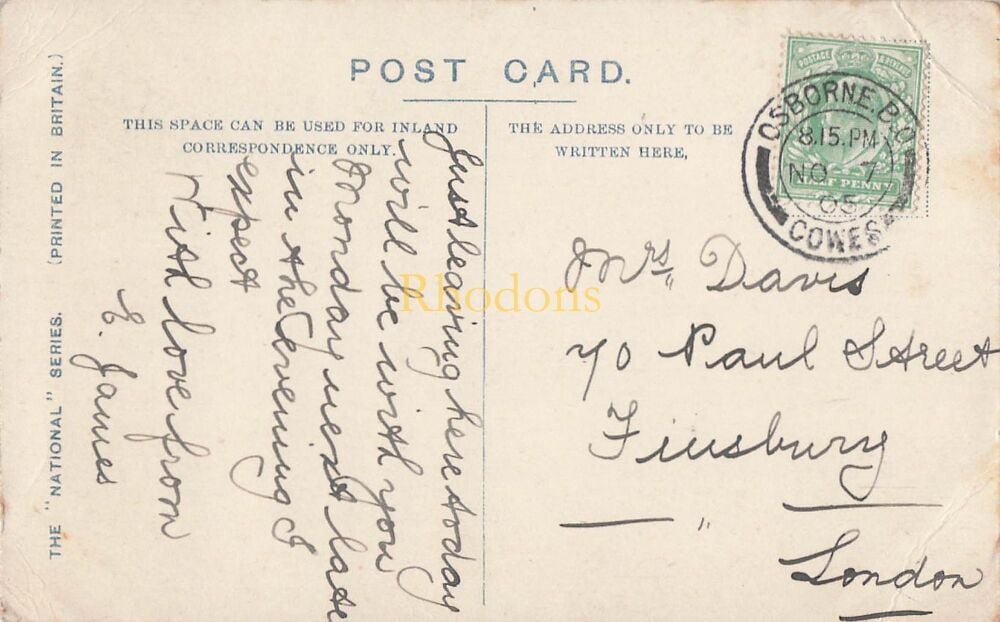 POST CARD.
THIS SPACE CAN BE USED FOR INLAND
CORRESPONDENCE ONLY.
THE ADDRESS ONLY TO BE
WRITTEN HERE,
THE "NATIONAL" SERIES. (PRINTED IN BRITAIN.)
Just leaving here today
will be with you
Monday next late
in the evening I
expect
With love from
E. James
POSTAGE
HALF PENNY
OSBORNE B.O
8.15.PM
NO 7
05
COWES
Mrs Davis
70 Paul Street
Finsbury
London
Rhodons